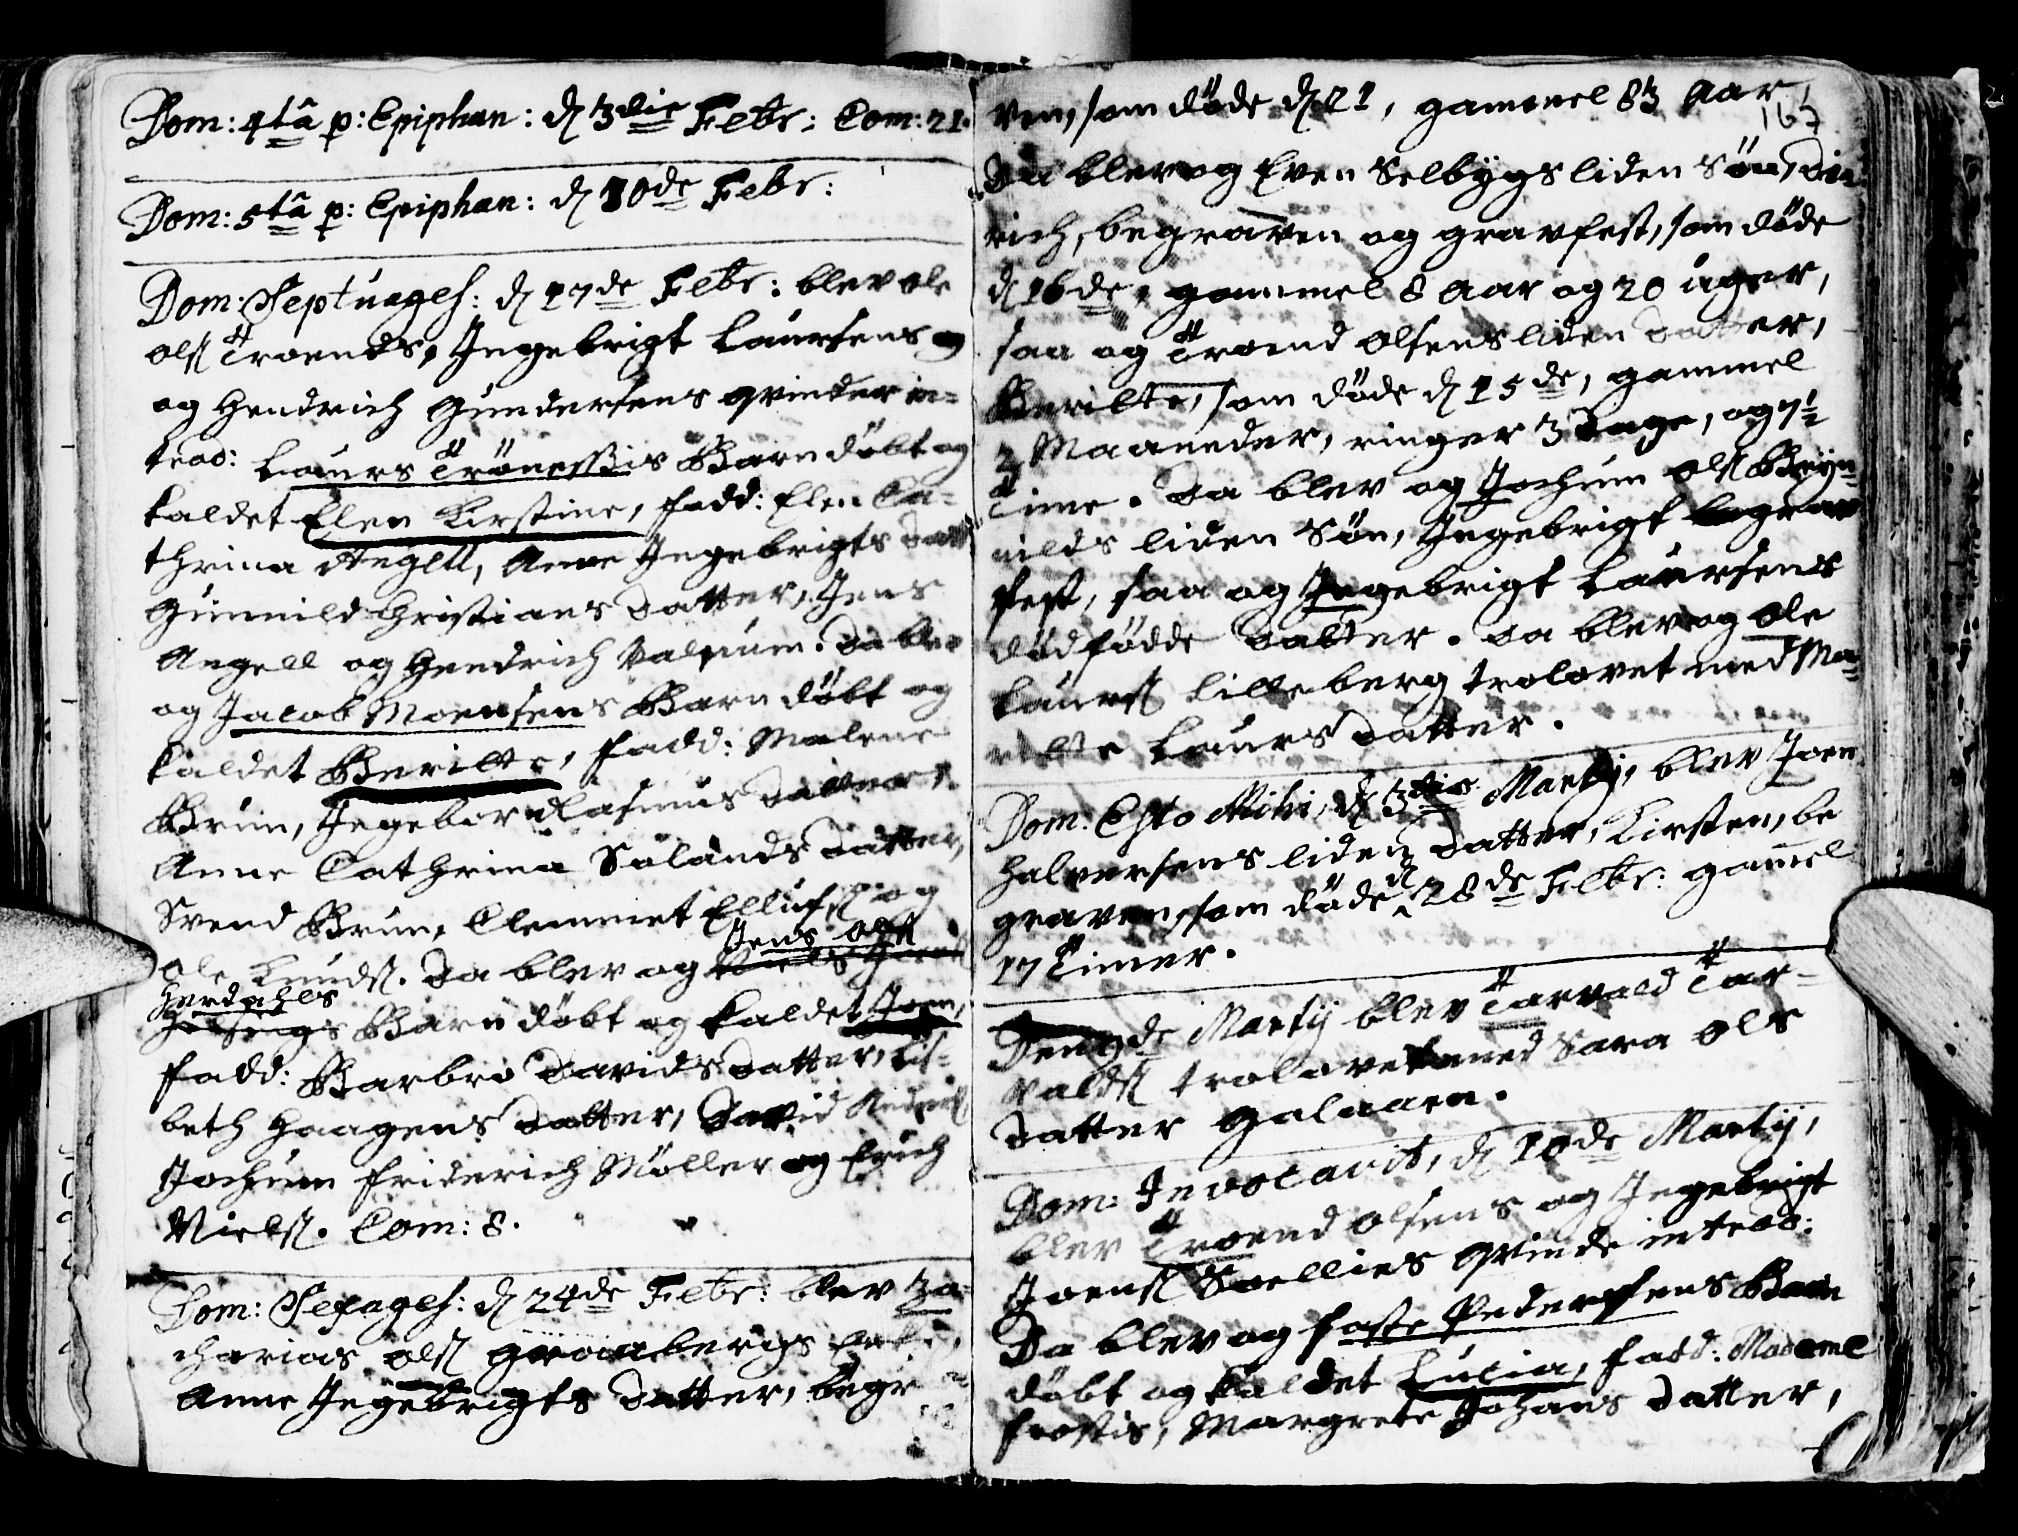 Dom: 4tâ p: Epiphan: d 3die Febr: Com: 21.
Dom: 5tâ p: Epiphan: d 10de Febr:
Dom: Septuages: d 17de Febr: blev Ole
Ols Troends, Ingebrigt Laursens og
og Hendrich Gundersens qvinder in-
trod: Laurs Trönessis Barn döbt og
kaldet Elen Kirstine, fadd: Elen Ca-
thrina Angell, Anne Ingebrigts Datt
Gunnild Christians Datter, Jens
Angell og Hendrich Valsium. Da blev
og Jacob Moensens Barn döbt og
kaldet Berilte, fadd: Malene
Brun, Ingebor Rasmus Datter,
Anne Cathrina Sölands Datter,
Svend Brun, Clemmet Ellufs og
Ole Knuds. Da blev og Jens Ols
Herdahls Barn döbt og kaldet Joen,
fadd: Barbro Davids Datter, Lis-
beth Haagens Datter, David
Jochum Friderich Möller og Erich
Niels. Com: 8.
Dom: Sexages: d 24de Febr: blev Za-
charias Ols Graabergs
Anne Ingebrigts Datter, begr
167
ven, som döde d 21, gammel 83 Aar
Da blev og Even Selbygs liden Sön, Did-
rich, begraven og gravfest, som döde
d 16de, gammel 8 Aar og 20 uger,
saa og Troend Olsens liden Datter,
Berilte, som döde d 15de, gammel
3 Maaneder, ringer 3 Dage, og 7 1/2
Time. Da blev og Jochum Ols Bryn-
nilds liden Sön, Ingebrigt begrav
fest, saa og Ingebrigt Laursens
dödfödde Datter. Da blev og Ole
Laurs Lilleberg trolovet med Ma-
ritte Laurs Datter.
Dom: Esto Mihi, d 3die Martij, blev Joen
Halversens liden Datter, Kirsten, be
graven, som döde d 28de Febr: gamel
17 Timer.
Den 7de Martij blev Tarvald Tar-
valds trolovet med Sara Ols
Datter Galaaen.
Dom: Invocavit, d 10de Martij,
blev Troend Olsens og Ingebrigt
Joens Soellies qvinde introd:
Da blev og Faste Pedersens Barn
döbt og kaldet Lucia, fadd: Madame
Frostis, Margrete Johans Datter,